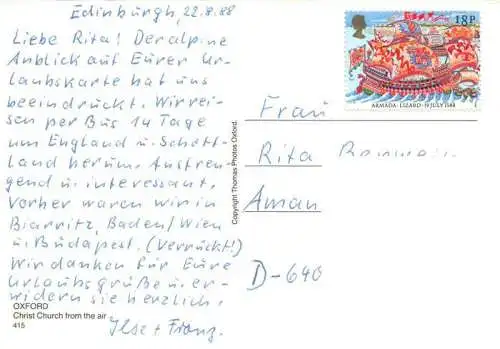 Edinburgh, 22.8.88
Liebe Rita! Der alpine
Anblick auf Eurer Ur-
laubskarte hat uns
beeindruckt. Wir rei-
sen per Bus 14 Tage
um England u. Schott-
land herum. Anstren-
gend u. interessant.
Vorher waren wir in
Biarritz, Baden/Wien
u. Budapest. (Verrückt!)
Wir danken für Eure
Urlaubsgrüße u. er-
widern sie herzlich.
Ilse + Franz.
OXFORD
Christ Church from the air
415
Copyright Thomas Photos Oxford.
18P
ARMADA · LIZARD · 19 JULY 1588
Frau
Rita
Aman
D-640